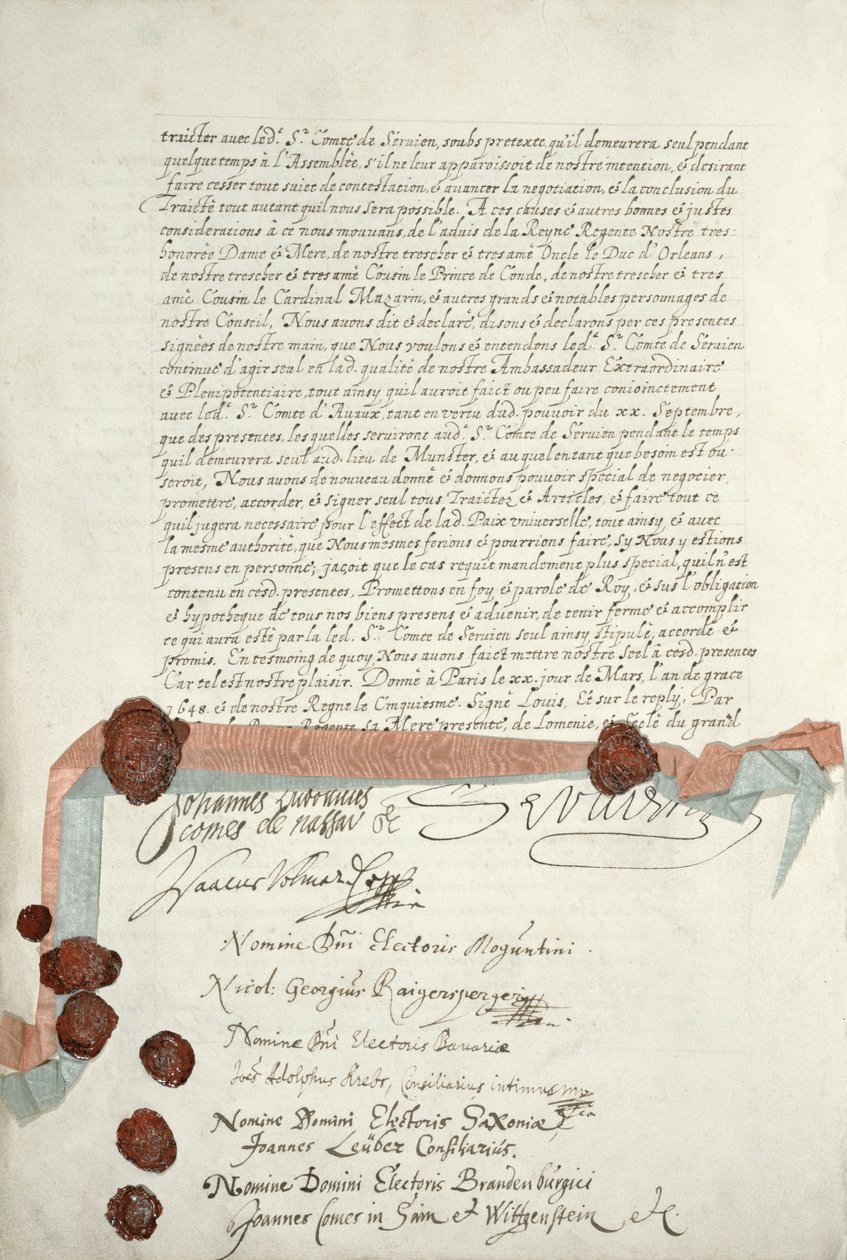 traicter avec led.t S.r Comte de Servien, soubs pretexte qu'il demeurera seul pendant
quelque temps à l'Assemblée, s'il ne leur apparoissoit de nostre intention, & desirant
faire cesser tout suiet de contestation, & auancer la negotiation, & la conclusion du
Traicté tout autant quil nous sera possible. A ces causes & autres bonnes & justes
considerations à ce nous mouvans, de l'aduis de la Reyne Regente Nostre tres-
honorée Dame & Mere, de nostre trescher & tresamé Oncle le Duc d'Orleans,
de nostre trescher & tresamé Cousin le Prince de Condé, de nostre trescher & tres
amé Cousin le Cardinal Mazarin, & autres grands & notables personnages de
nostre Conseil, Nous avons dit & declaré, disons & declarons per ces presentes
signées de nostre main, que Nous voulons & entendons led.t S.r Comte de Servien
continue d'agir seul en lad. qualité de nostre Ambassadeur Extraordinaire
& Plenipotentiaire, tout ainsy quil auroit faict ou peu faire conioinctement
avec led.t S.r Comte d'Avaux, tant en vertu dud. pouvoir du xx. Septembre,
que des presentes, les quelles serviront aud.t S.r Comte de Servien pendant le temps
quil demeurera seul aud. lieu de Munster, & au quel entant que besoin est ou
seroit, Nous avons de nouveau donné & donnons pouvoir special de negocier,
promettre, accorder, & signer seul tous Traictez & Articles, & faire tout ce
quil jugera necessaire pour l'effect de lad. Paix vniverselle, tout ainsy, & avec
la mesme authorité, que Nous mesmes ferions & pourrions faire, sy Nous y estions
presens en personne; jaçoit que le cas requit mandement plus special, quil n'est
contenu en cesd. presentes, Promettons en foy & parole de Roy, & sus l'obligation
& hypotheque de tous nos biens presens & advenir, de tenir ferme & accomplir
ce qui aura esté par la led. S.r Comte de Servien seul ainsy stipulé, accordé &
promis. En tesmoing de quoy, Nous avons faict mettre nostre Seel à cesd. presentes
Car tel est nostre plaisir. Donné à Paris le xx. jour de Mars, l'an de grace
1648. & de nostre Regne le Cinquiesme. Signé Louis, Et sur le reply, Par
Regente sa Mere presente, de Lomenie, & seelé du grand
Johannes Ludovicus
comes de Nassau &c
Servien
Isaacus Volmar
Nomine Dñi Electoris Moguntini.
Nicol: Georgius Raigersperger
Nomine Dñi Electoris Bavariæ
Joēs Adolphus Krebs, Consiliarius intimus mp
Nomine Domini Electoris Saxoniæ
Joannes Leüber Consiliariüs.
Nomine Domini Electoris Brandenbürgici
Joannes Comes in Sain et Wittgenstein etc.